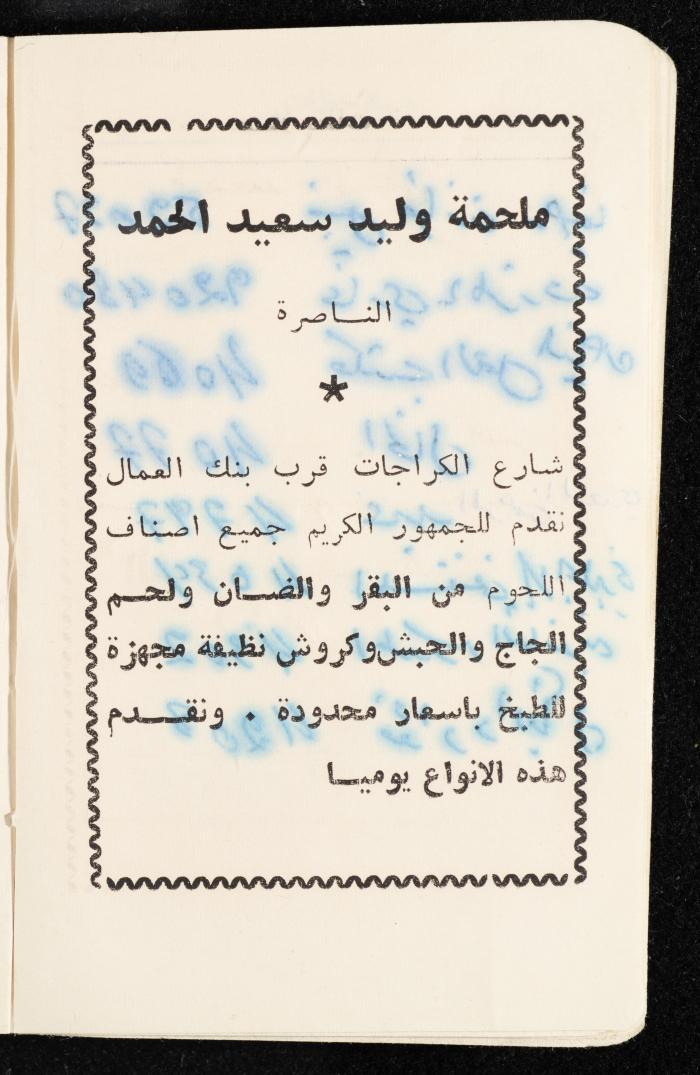 ملحمة وليد سعيد الحمد
الناصرة
*
شارع الكراجات قرب بنك العمال
نقدم للجمهور الكريم جميع اصناف
اللحوم من البقر والضان ولحم
الجاج والحبش وكروش نظيفة مجهزة
للطبخ باسعار محدودة . ونقدم
هذه الانواع يوميا